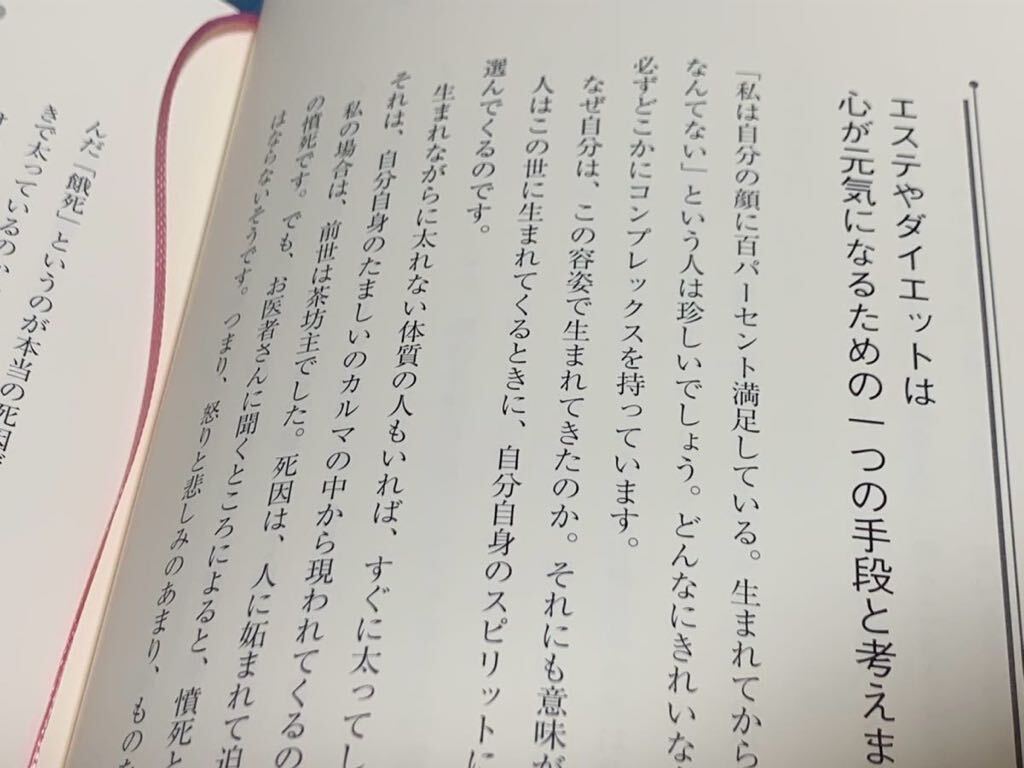 エステやダイエットは
心が元気になるための一つの手段と考えま
「私は自分の顔に百パーセント満足している。生まれてから
なんてない」という人は珍しいでしょう。どんなにきれいな
必ずどこかにコンプレックスを持っています。
なぜ自分は、この容姿で生まれてきたのか。それにも意味が
人はこの世に生まれてくるときに、自分自身のスピリットに
選んでくるのです。
生まれながらに太れない体質の人もいれば、すぐに太ってし
それは、自分自身のたましいのカルマの中から現われてくるの
私の場合は、前世は茶坊主でした。死因は、人に妬まれて迫
の憤死です。でも、お医者さんに聞くところによると、憤死と
はならないそうです。つまり、怒りと悲しみのあまり、もの
んだ「餓死」というのが本当の死因
きで太っているのか